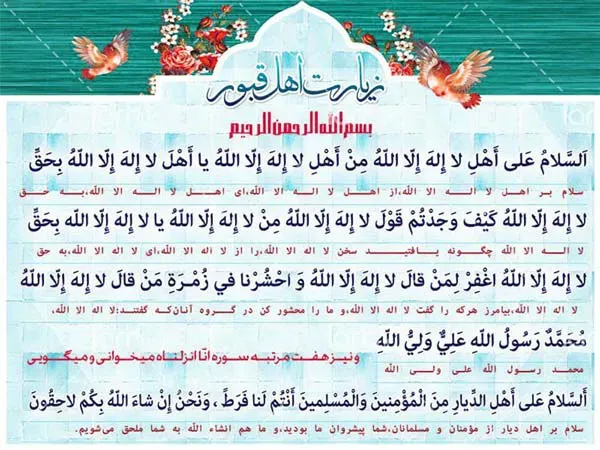 زیارت اهل قبور
بسم الله الرحمن الرحیم
اَلسَّلامُ عَلى أَهْلِ لا إِلهَ إِلَّا اللَّهُ مِنْ أَهْلِ لا إِلهَ إِلَّا اللَّهُ يا أَهْلَ لا إِلهَ إِلَّا اللَّهُ بِحَقِّ
سلام بر اهل لا اله الا الله،از اهل لا اله الا الله،ای اهل لا اله الا الله،به حق
لا إِلهَ إِلَّا اللَّهُ كَيْفَ وَجَدْتُمْ قَوْلَ لا إِلهَ إِلَّا اللَّهُ مِنْ لا إِلهَ إِلَّا اللَّهُ يا لا إِلهَ إِلَّا اللَّهُ بِحَقِّ
لا اله الا الله چگونه یافتید سخن لا اله الا الله،را از لا اله الا الله،ای لا اله الا الله،به حق
لا إِلهَ إِلَّا اللَّهُ اغْفِرْ لِمَنْ قالَ لا إِلهَ إِلَّا اللَّهُ وَ احْشُرْنا في زُمْرَةِ مَنْ قالَ لا إِلهَ إِلَّا اللَّهُ
لا اله الا الله،بیامرز هرکه را گفت لا اله الا الله،و ما را محشور کن در گروه آنان‌که گفتند:لا اله الا الله،
مُحَمَّدٌ رَسُولُ اللَّهِ عَلِيٌّ وَلِيُّ اللَّهِ
ونیز هفت مرتبه سوره انّا انزلناه میخوانی و میگویی
محمد رسول الله علی ولی الله
أَلسَّلامُ عَلى أَهْلِ الدِّيارِ مِنَ الْمُؤْمِنينَ وَالْمُسْلِمينَ أَنْتُمْ لَنا فَرَطٌ ، وَنَحْنُ إِنْ شاءَ اللَّهُ بِكُمْ لاحِقُونَ
سلام بر اهل دیار از مؤمنان و مسلمانان،شما پیشروان ما بودید،و ما هم انشاء الله به شما ملحق می‌شویم.